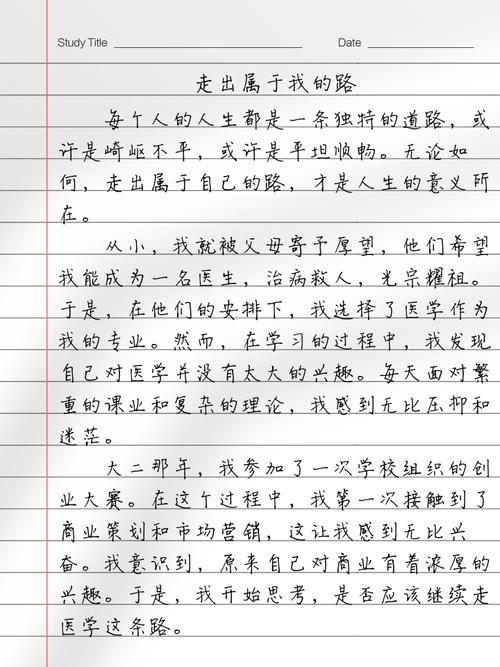 Study Title Date
走出属于我的路
每个人的人生都是一条独特的道路，或
许是崎岖不平，或许是平坦顺畅。无论如
何，走出属于自己的路，才是人生的意义所
在。
从小，我就被父母寄予厚望，他们希望
我能成为一名医生，治病救人，光宗耀祖。
于是，在他们的安排下，我选择了医学作为
我的专业。然而，在学习的过程中，我发现
自己对医学并没有太大的兴趣。每天面对繁
重的课业和复杂的理论，我感到无比压抑和
迷茫。
大二那年，我参加了一次学校组织的创
业大赛。在这个过程中，我第一次接触到了
商业策划和市场营销，这让我感到无比兴
奋。我意识到，原来自己对商业有着浓厚的
兴趣。于是，我开始思考，是否应该继续走
医学这条路。